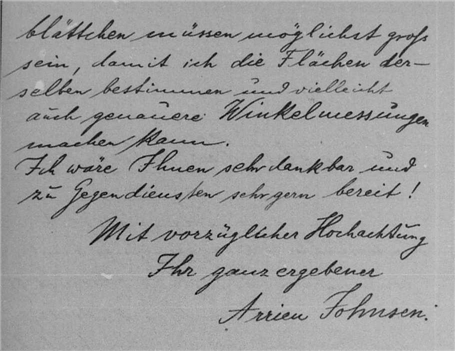 blättchen müssen möglichst gross
sein, damit ich die Flächen der-
selben bestimmen und vielleicht
auch genauere Winkelmessungen
machen kann.
Ich wäre Ihnen sehr dankbar und
zu Gegendiensten sehr gern bereit!
Mit vorzüglicher Hochachtung
Ihr ganz ergebener
Arrien Johnsen.